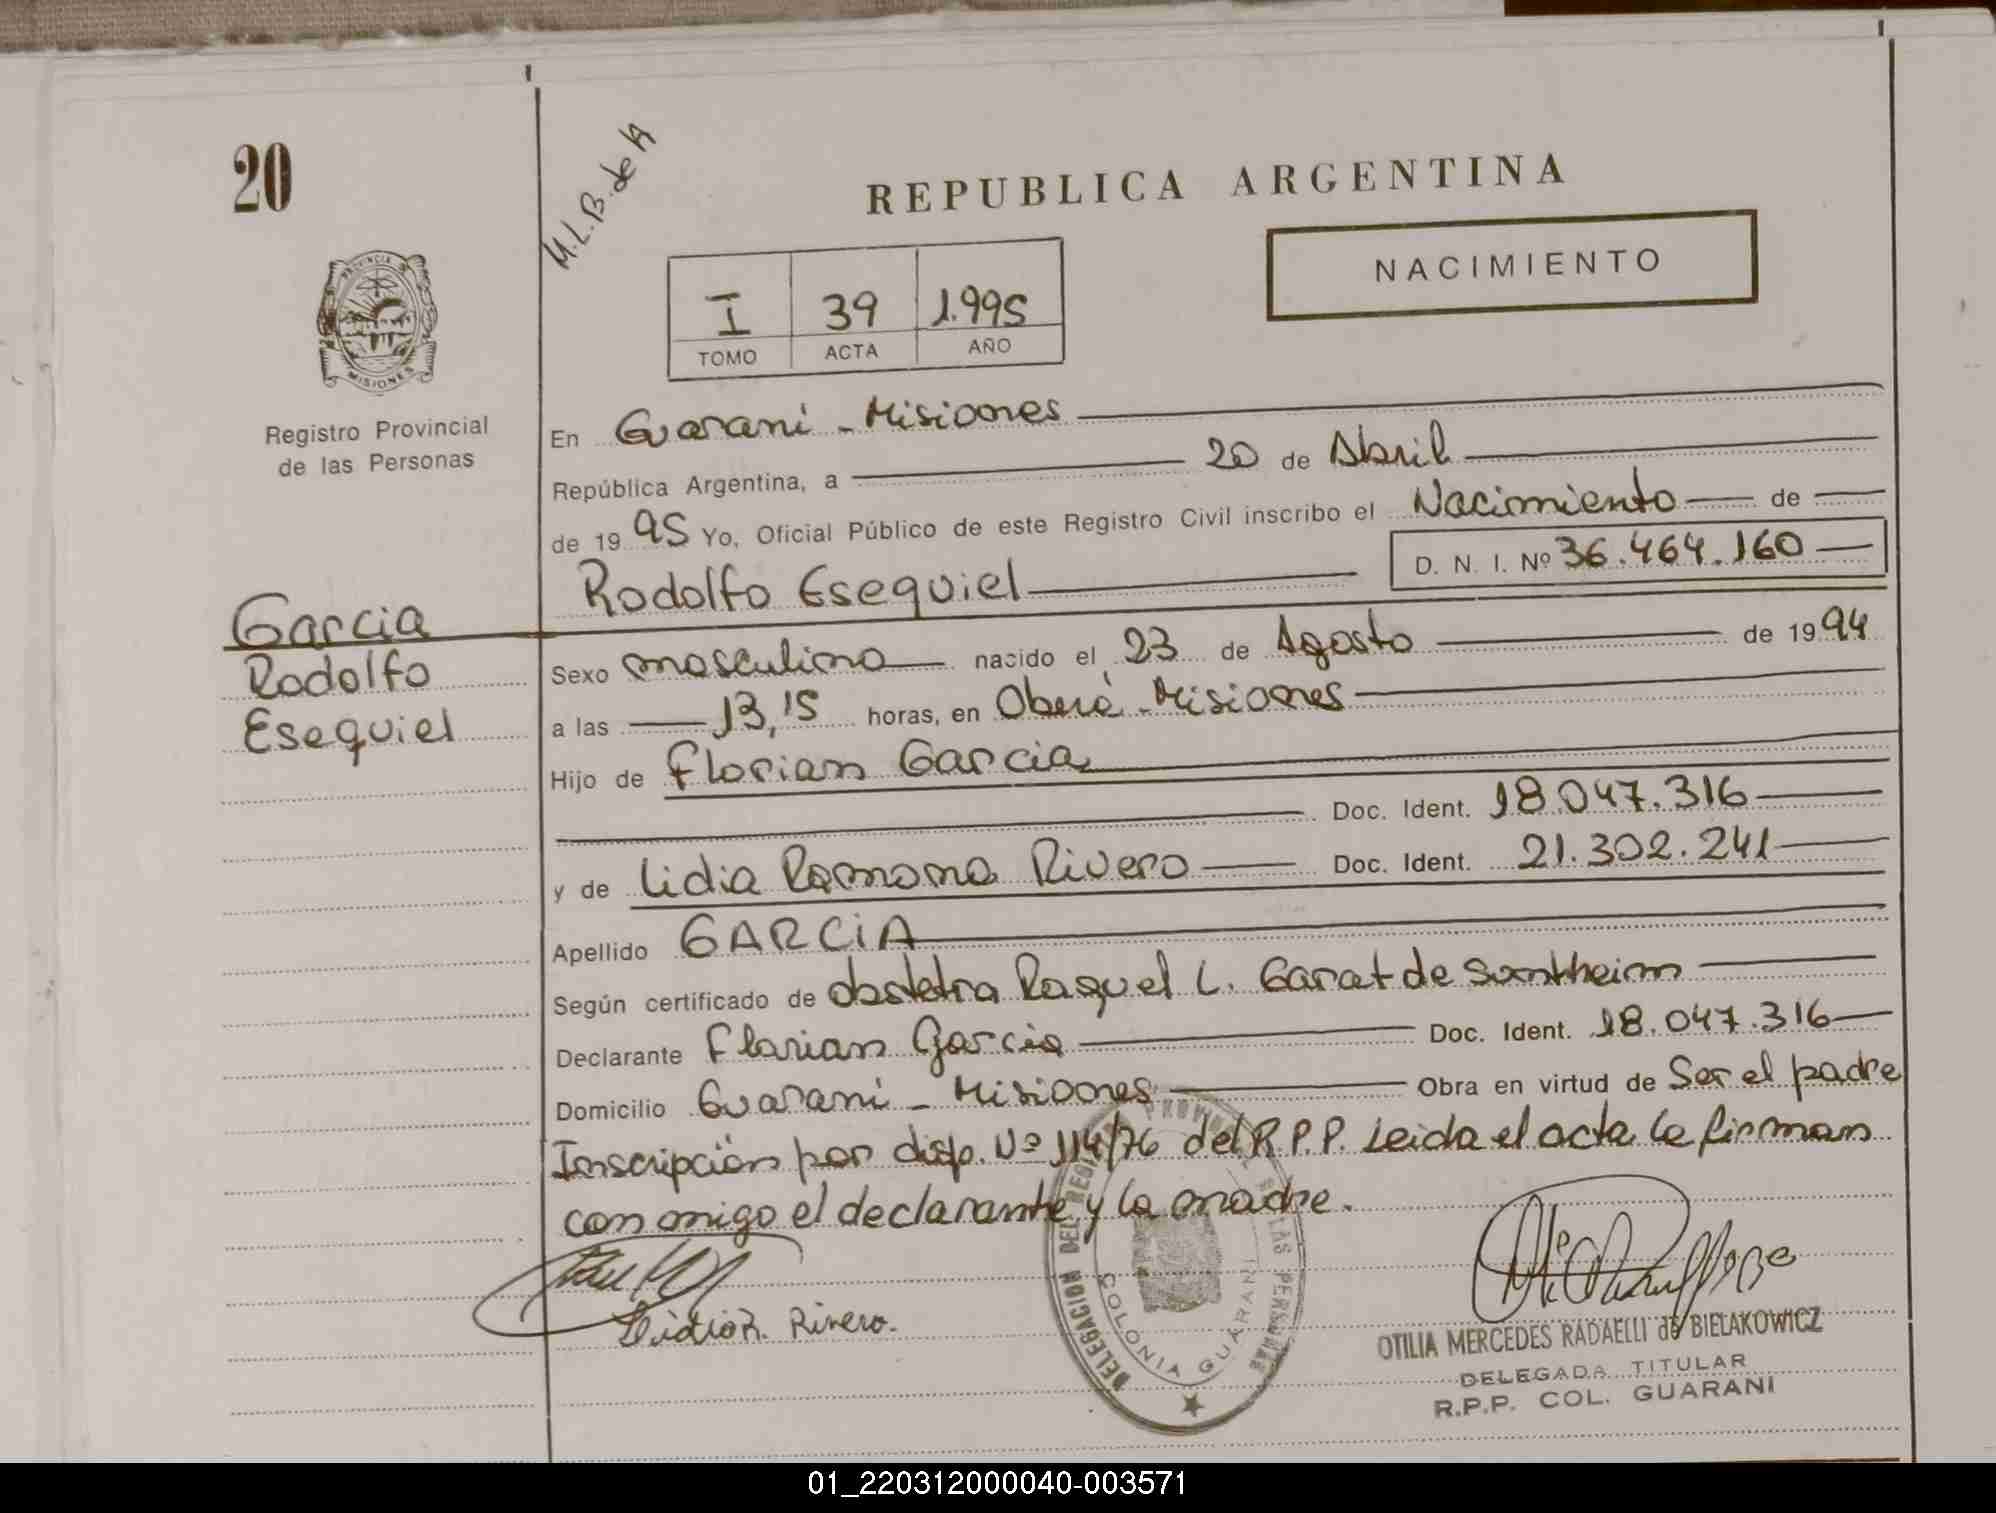 20
M.L.B. de A
REPUBLICA ARGENTINA
NACIMIENTO
I 39 1.995
TOMO ACTA AÑO
PROVINCIA DE
MISIONES
Registro Provincial
de las Personas
Garcia
Rodolfo
Esequiel
En Guaraní - Misiones
República Argentina, a 20 de Abril
de 19 95 Yo, Oficial Público de este Registro Civil inscribo el Nacimiento de
Rodolfo Esequiel D. N. I. Nº 36.464.160
Sexo masculino nacido el 23 de Agosto de 19 94
a las 13,15 horas, en Oberá - Misiones
Hijo de Florian Garcia
Doc. Ident. 18.047.316
y de Lidia Ramona Rivero Doc. Ident. 21.302.241
Apellido GARCiA
Según certificado de obstetra Raquel L. Garat de Sontheim
Declarante Florian Garcia Doc. Ident. 18.047.316
Domicilio Guaraní - Misiones Obra en virtud de Ser el padre
Inscripción por disp. Nº 114/76 del R.P.P. Leida el acta la firman
conmigo el declarante y la madre.
Lidia R. Rivero.
DELEGACION DEL REGISTRO PROVINCIAL DE LAS PERSONAS
COLONIA GUARANI
OTILIA MERCEDES RADAELLI de BIELAKOWICZ
DELEGADA TITULAR
R.P.P. COL. GUARANI
01_220312000040-003571